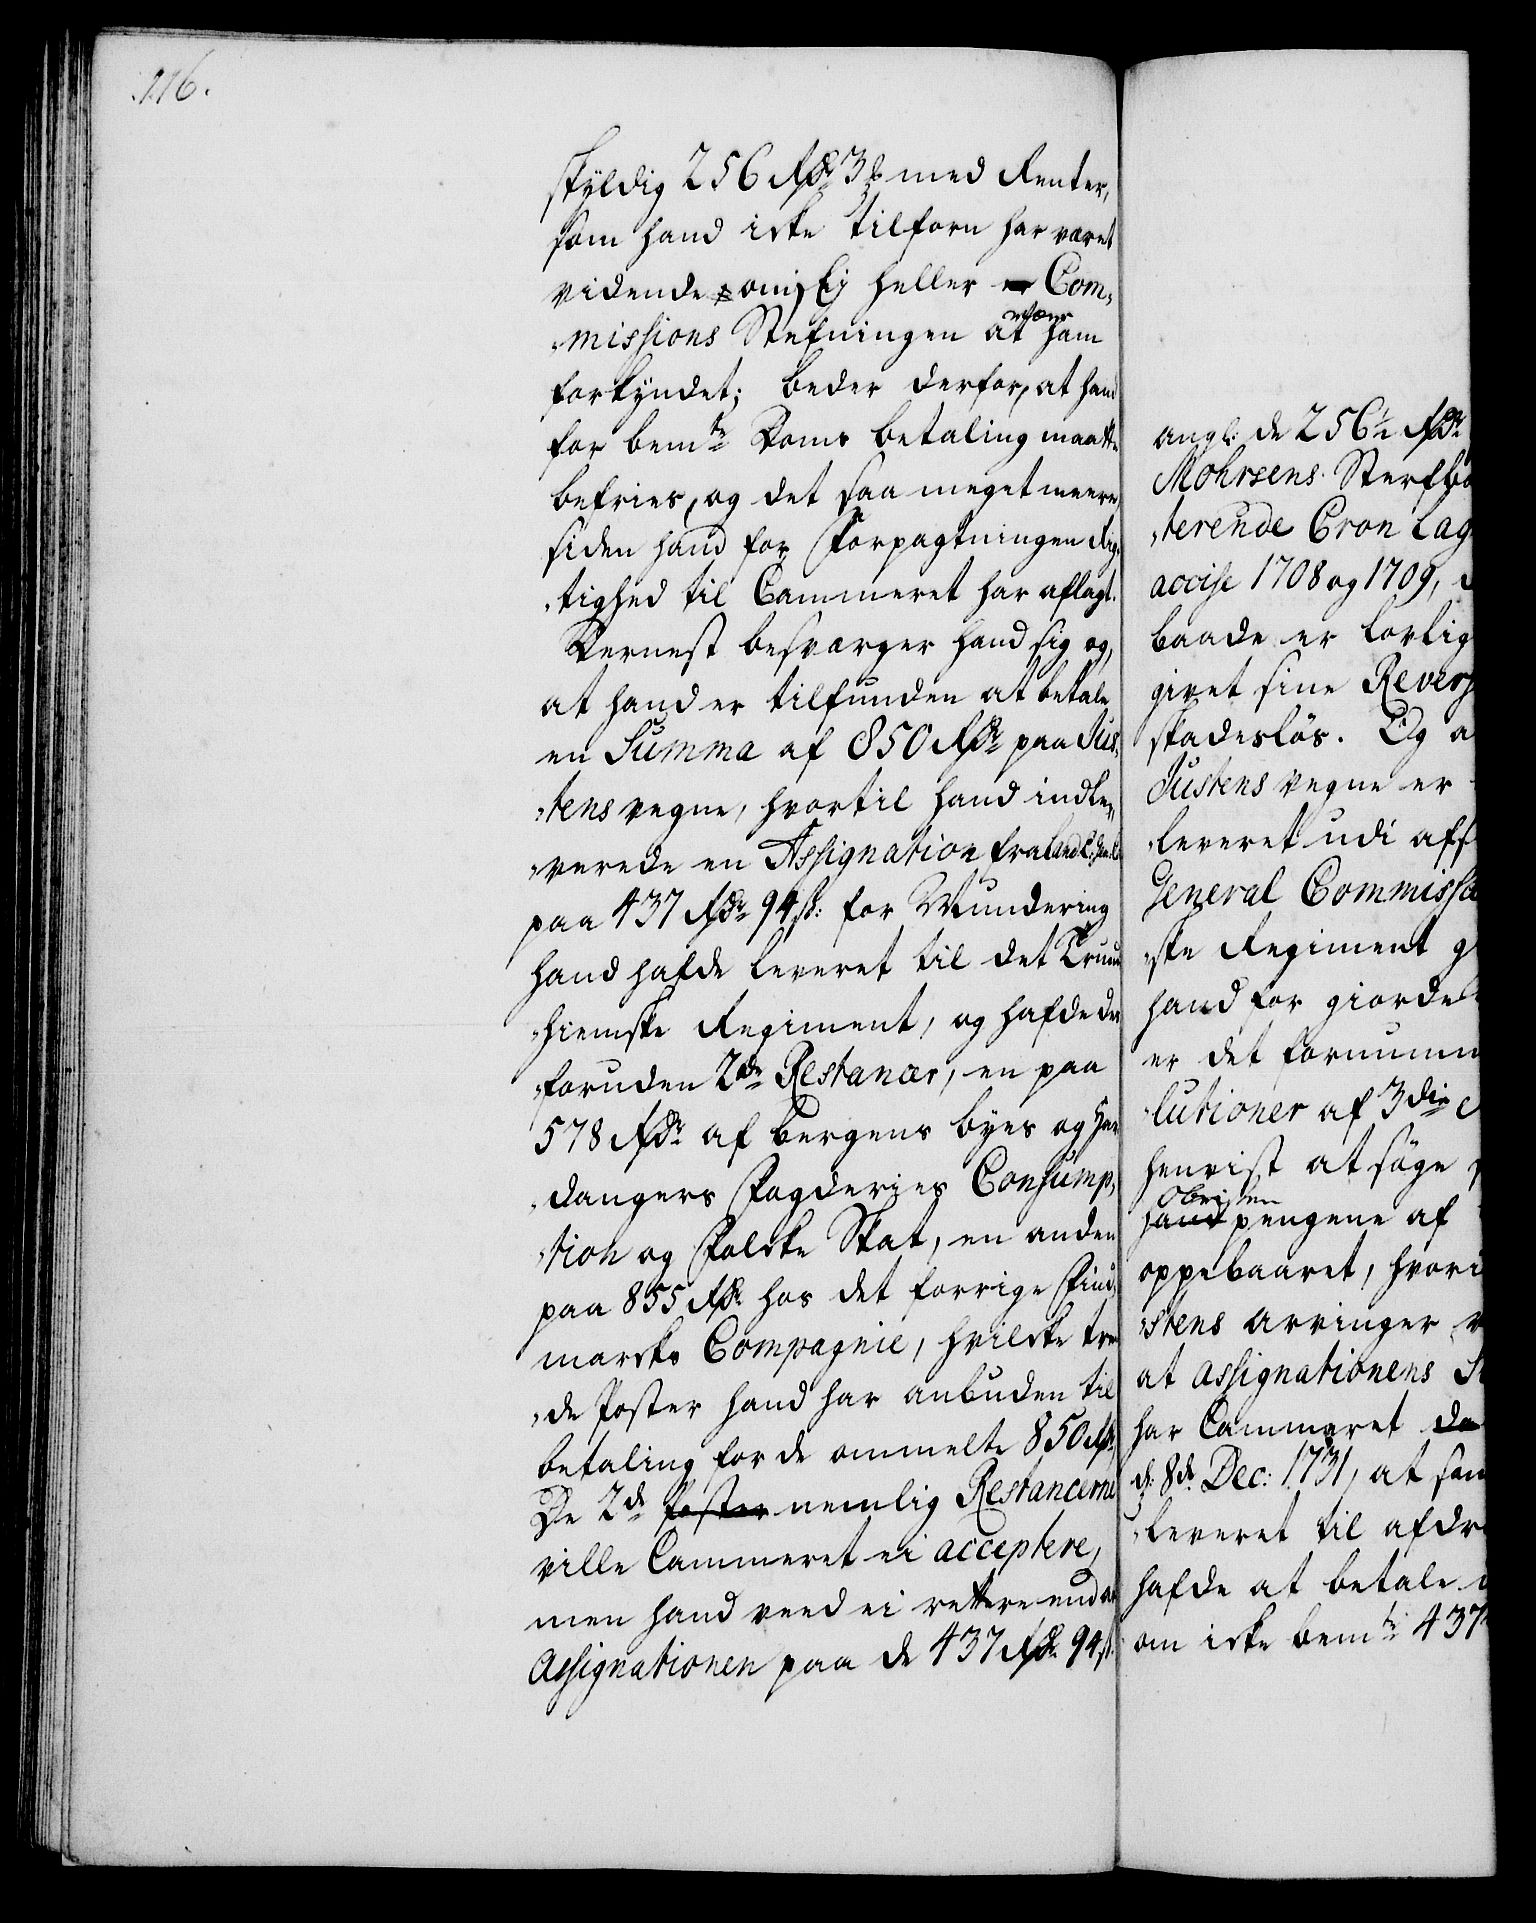 116.
skyldig 256 Rdr 3 ß med Renter,
som hand icke tilforn har været
vidende om, Ej heller Com-
missions Stefningen at være ham
forkyndet; beder derfor, at hand
for bemte Doms betaling maatte
befries, og det saa meget meere
siden hand for Forpagtningen Rig-
tighed til Cammeret har aflagt.
Dernest besværger hand sig og,
at hand er tilfunden at betale
en Summa af 850 Rdr paa Jus-
tens vegne, hvortil hand indle-
verede en Assignation fra
paa 437 Rdr 94 ß: for Mundering
hand hafde leveret til det Trund-
hiemske Regiment, og hafde der-
foruden 2de Restancer, en paa
578 Rdr af Bergens byes og Har-
dangers Fogderies Consump-
tion og Folcke Skat, en anden
paa 855 Rdr hos det forrige Find-
marcks Compagnie, hvilcke tre-
de Poster hand har anbuden til
betaling for de ommelte 850 Rdr,
De 2de Poster nemlig Restancerne
ville Cammeret ei acceptere,
men hand veed ei rettere end at
Assignationen paa de 437 Rdr 94 ß.
angl: de 256½ Rdr
Mohrsens Sterfbo
terende Cron Lag
accise 1708 og 1709,
baade er lovlig
givet sine Revers
skadesløs. Og a
Justens vegne er
leveret udi aff
General Commissa
ske Regiment g
hand for giorde
er det fornumm
lutioner af 3die
henvist at søge
Obristen
hand pengene af
oppebaaret, hvori
stens arvinger
at assignationens S
har Cammeret da
d: 8de Dec: 1731, at som
leveret til afdr
hafde at betale
om icke bemte 437